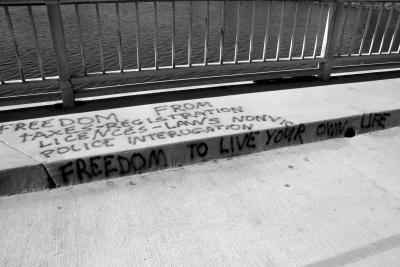 FREEDOM FROM
TAXES REGISTRATION
LICENCES - LAWS NONVIO
POLICE INTERUGATION
FREEDOM TO LIVE YOUR OWN LIFE